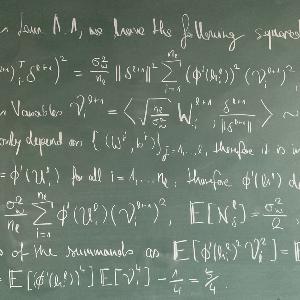 form 1.1, we have the following squared
)ᵀ δ^{l+1})² = σ_w²/n_l ‖δ^{l+1}‖² Σ_{i=1}^{n_l} (φ'(u_i^l))² (ν_i^{l+1})²
Variables ν_i^{l+1} = ⟨ √(n_l/σ_w²) W_i^{l+1}, δ^{l+1}/‖δ^{l+1}‖ ⟩ ~
only depend on {(W^j, b^j)}_{j=1...l}, therefore it is in
= φ'(u_i^l) for all i=1,...n_l. therefore φ'(u_i^l) d
σ_w²/n_l Σ_{i=1}^{n_l} φ'(u_i^l)² (ν_i^{l+1})², E[N_δ^l] = σ_w²/2
s of the summands as E[φ'(u_i^l)² ν_i²] = E
= E[(φ'(u_i^l))⁴] E[ν_i⁴] − 1/4 = 5/4.